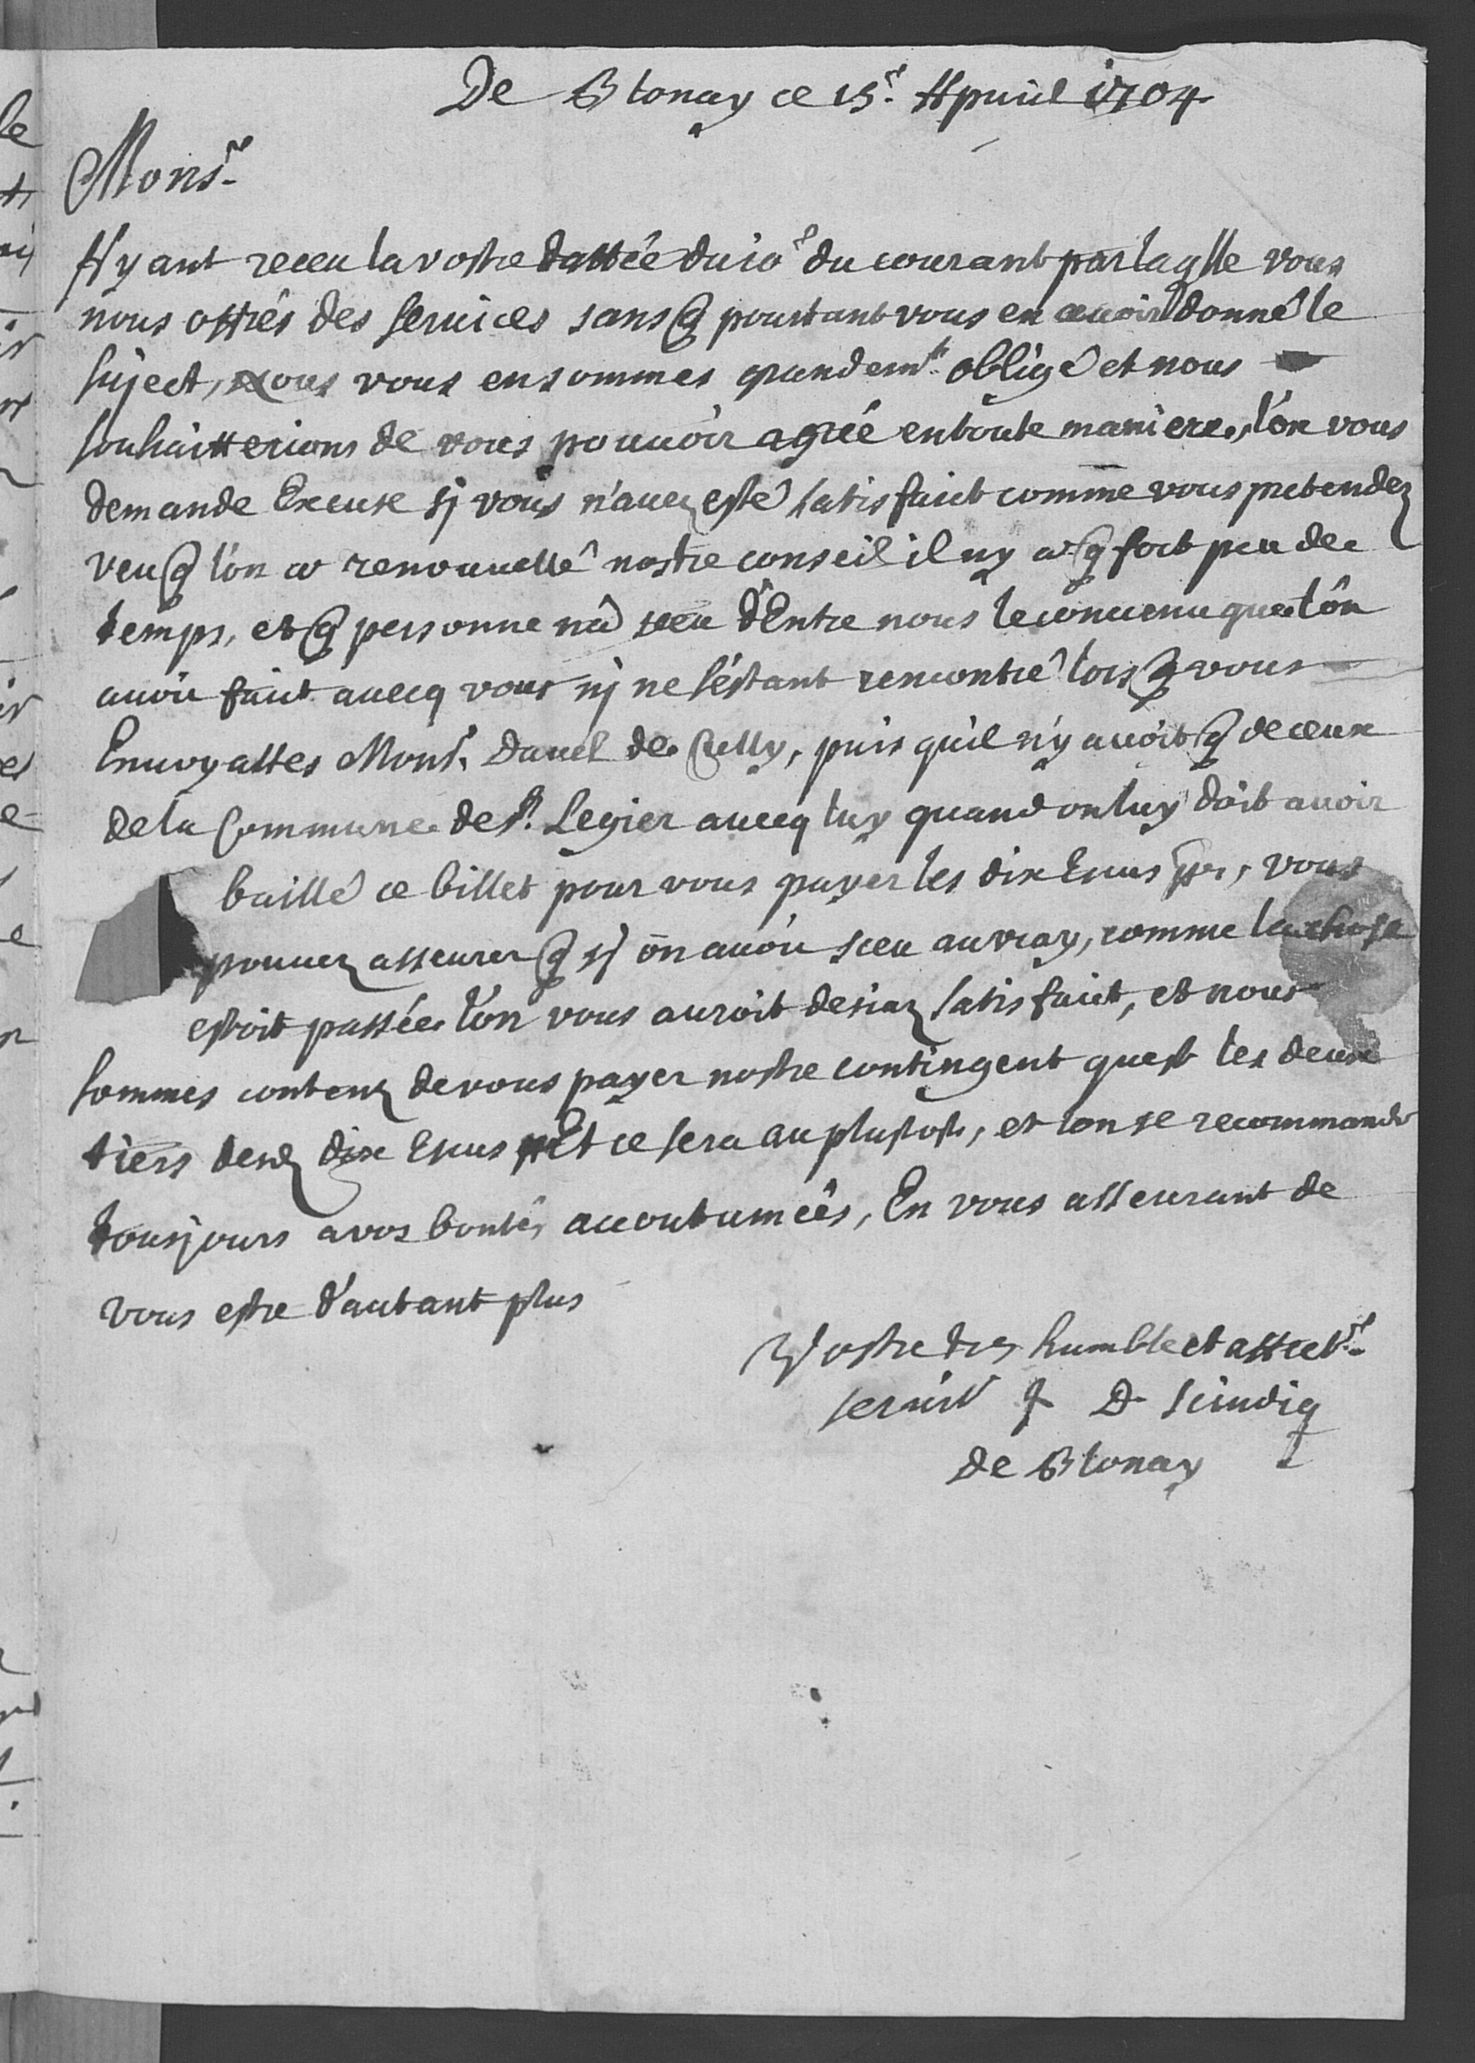 De Blonay ce 15e. Apuril 1704
Monsr
Ayant receu la vostre dattée du 10e du courant par laqlle vous
nous offrés des seruices sans q pourtant vous en auoir donné le
suject, nous vous en sommes grandemt. obligé et nous
souhaitterions de vous pouuoir agréé en toute maniere, l'on vous
demande Excuse sy vous n'auez esté satisfaict comme vous pretendez
veu q l'on a renouuellé nostre conseil il ny a q fort peu de
temps, et q personne n'a sceu d'Entre nous le conuenu que l'on
auoit faict auecq vous ny ne s'estant rencontré lors q vous
Enuoyattes Monsr. Dauel de Cully, puis qu'il n'y auoit q de ceux
de la Commune de St. Legier auecq luy quand on luy doit auoir
baillé ce billet pour vous payer les dix Escus ptt, vous
pouuez asseurer q sy on auoit sceu au vray, comme la chose
estoit passée l'on vous auroit desiaz satisfaict, et nous
sommes contenz de vous payer nostre contingent quest les deux
tiers desd dix Escus Et ce sera au plustost, et lon se recommande
tousjours a vos bontés accoutumées, En vous asseurant de
vous estre d'autant plus
Vostre tres humble et affectr
seruit D Scindiq
de Blonay